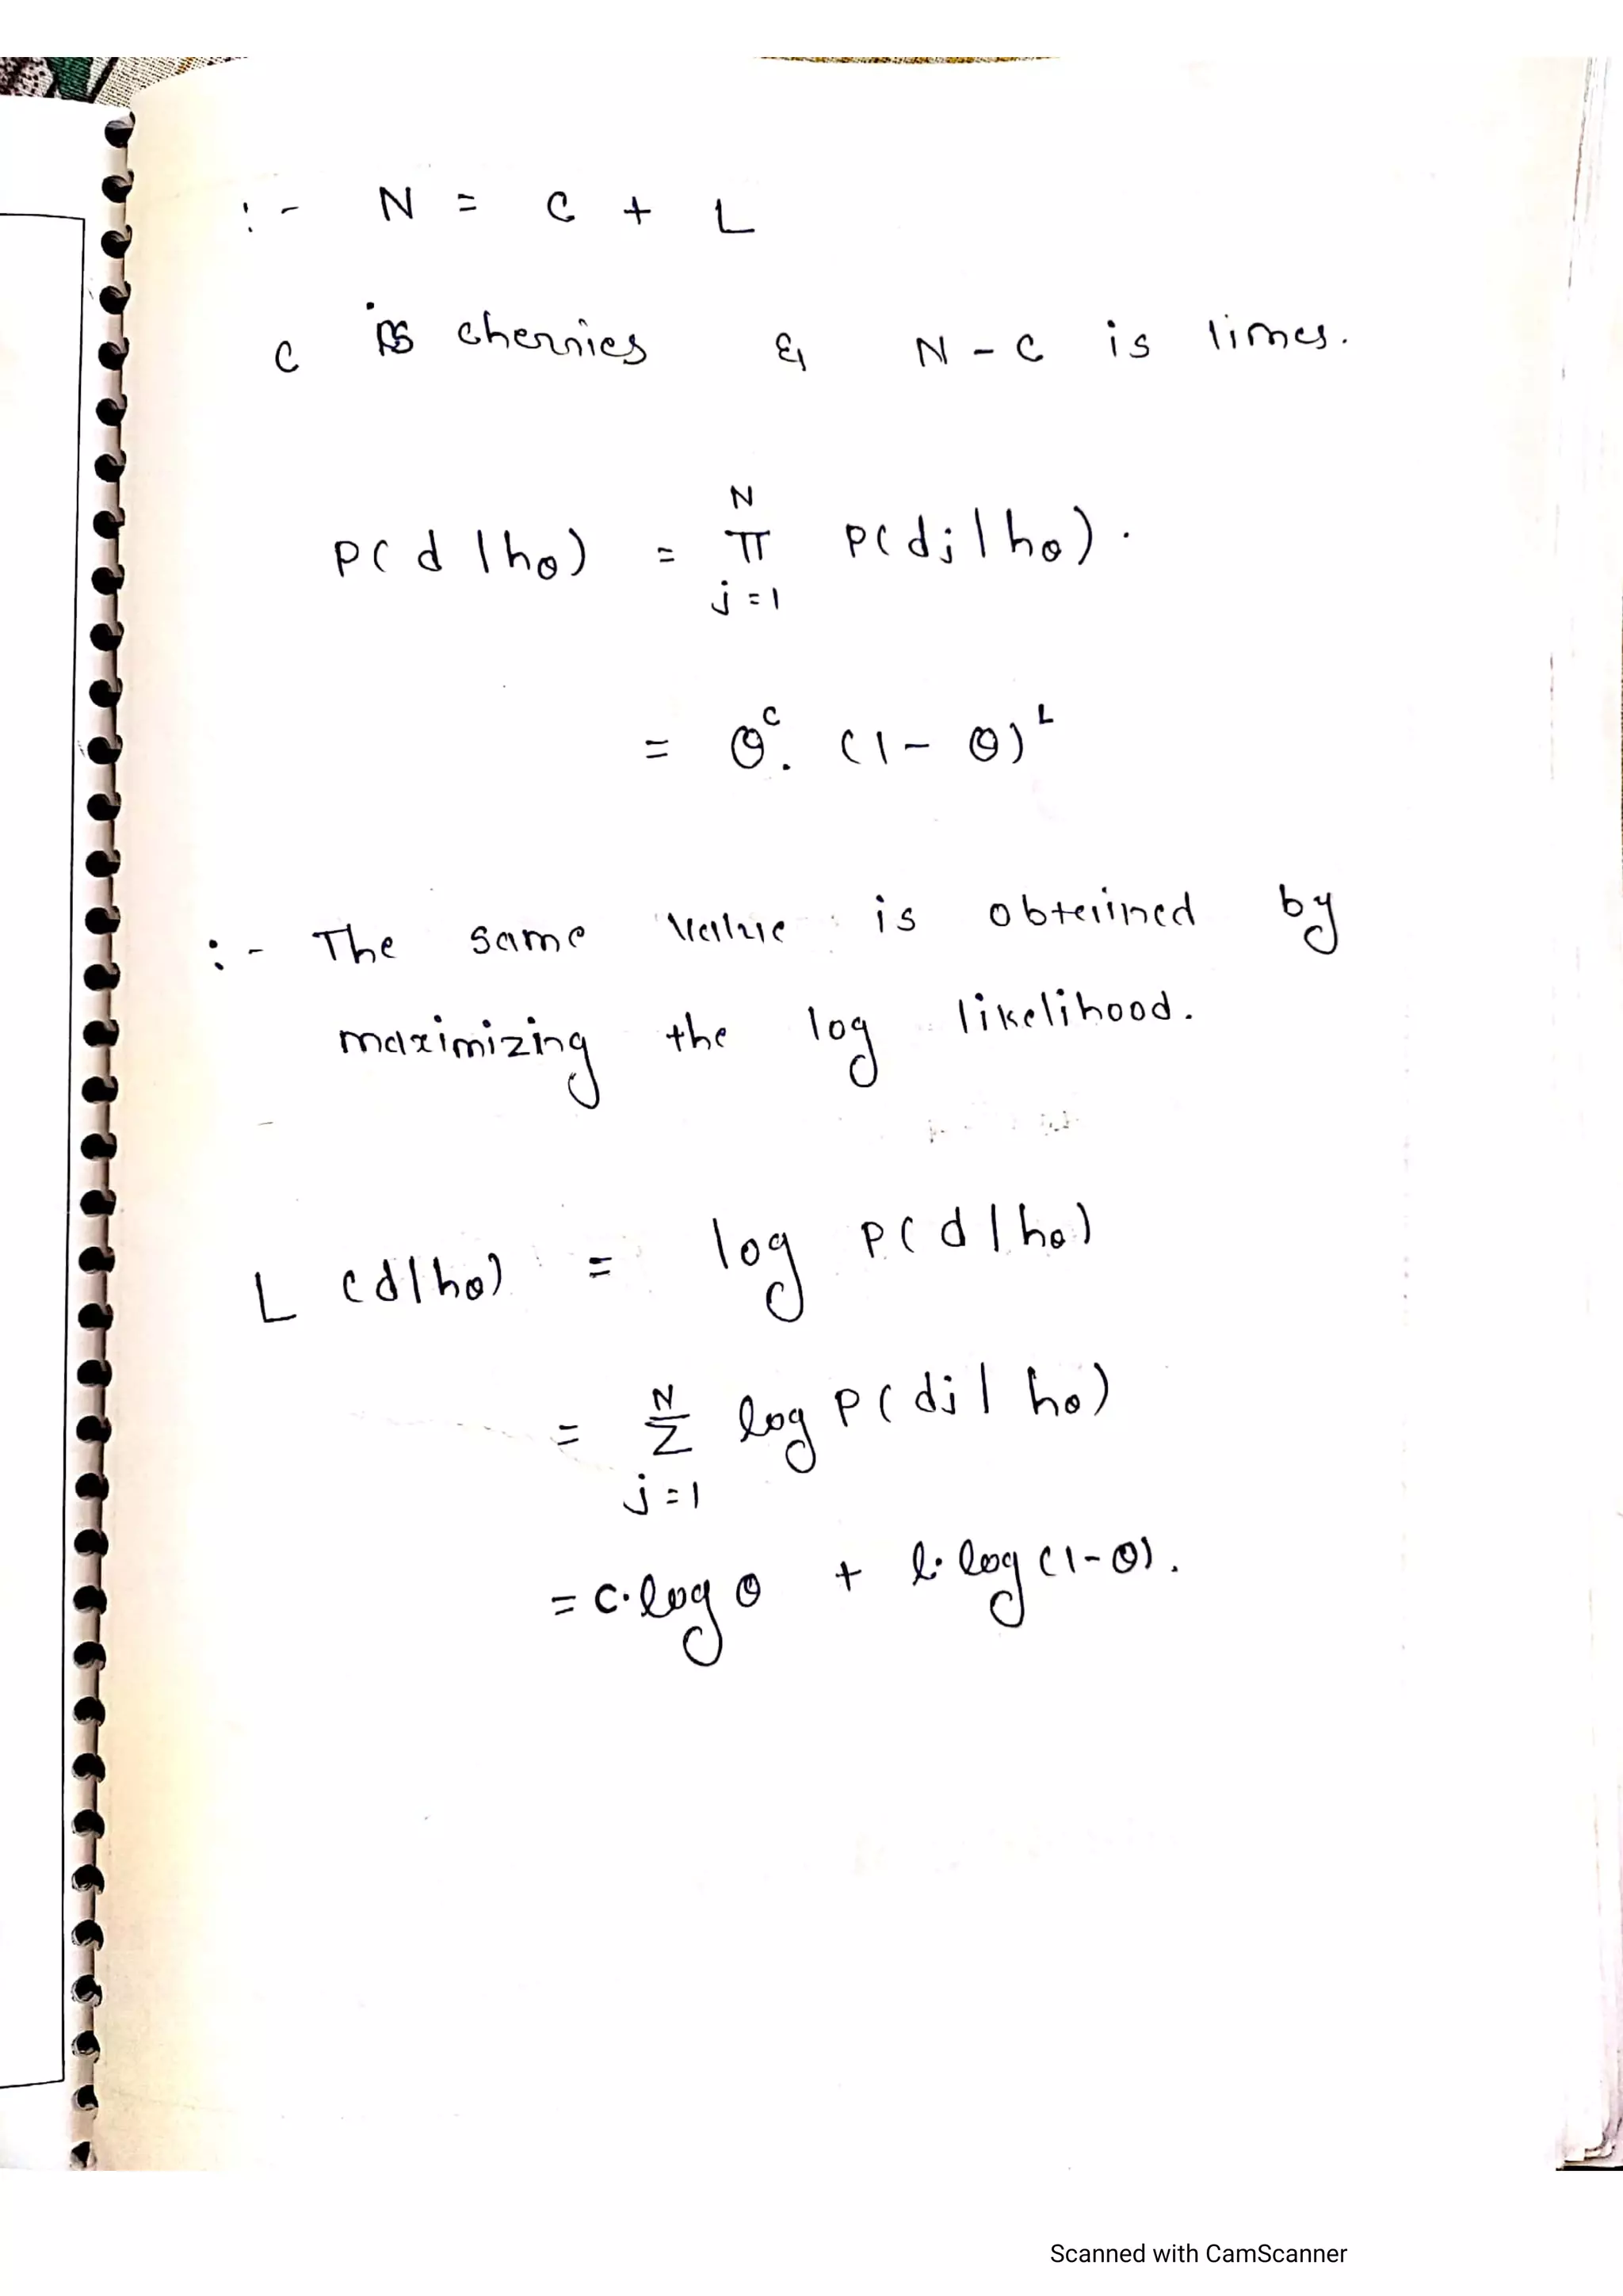 :- N = C + L
C is cherries & N - C is limes.
P(d|hθ) = N π j=1 P(dj|hθ).
= θ^C. (1 - θ)^L
:- The same value is obtained by
maximizing the log likelihood.
L (d|hθ) = log P(d|hθ)
= N Σ j=1 log P(dj| hθ)
= C.log θ + l.log(1-θ).
Scanned with CamScanner